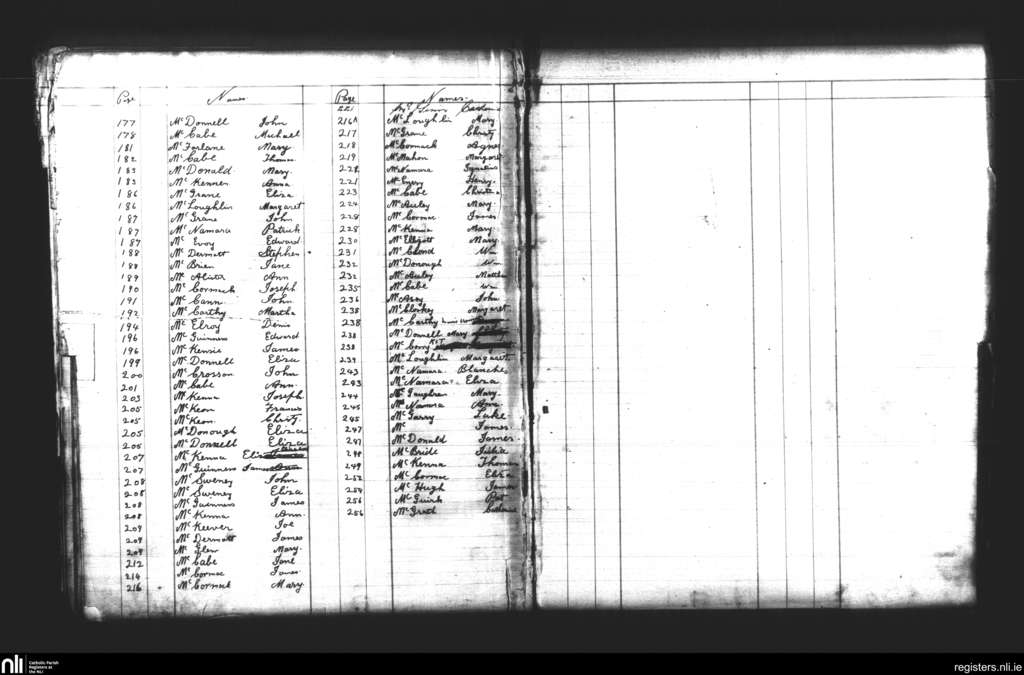 Page Names
177 Mc Donnell John
178 Mc Cabe Michael
181 Mc Forlane Mary
182 Mc Cabe Thomas
183 Mc Donald Mary
183 Mc Kenner Anna
186 Mc Grane Eliza
186 Mc Loughlin Margaret
187 Mc Grane John
187 Mc Namara Patrick
187 Mc Evoy Edward
188 Mc Dermott Stephen
188 Mc Brien Jane
189 Mc Alister Ann
190 Mc Cormack Joseph
191 Mc Cann John
192 Mc Carthy Martha
194 Mc Elroy Denis
196 Mc Guinness Edward
196 Mc Kensie James
199 Mc Donnell Eliza
200 Mc Crosson John
201 Mc Cabe Ann
203 Mc Kenna Joseph
205 Mc Keon Francis
205 Mc Keon Christy
205 Mc Donough Eliza
205 Mc Donnell Eliza
207 Mc Kenna Eliz
207 Mc Guinness James
208 Mc Sweney John
208 Mc Sweney Eliza
208 Mc Guinness James
208 Mc Kenna Ann
209 Mc Keever Joe
209 Mc Dermott James
209 Mc Glew Mary
212 Mc Cabe Jane
214 Mc Cormac James
216 Mc Cormack Mary
Page Names
221
216A Mc Loughlin Mary
217 Mc Grane Christy
218 Mc Cormack Agnes
219 Mc Mahon Margaret
Mc Namara Ignatius
221 Mc Henry
223 Mc Cabe Christina
224 Mc Auley Mary
228 Mc Cormac James
228 Mc Kenna Mary
230 Mc Elligott Mary
231 Mc Wm
232 Mc Donough Wm
232 Mc Auley Matthew
235 Mc Cabe Wm
236 Mc Avoy John
238 Mc Closkey Margaret
238 Mc Carthy
238 Mc Donnell Mary
238 Mc Corry KET
239 Mc Loughlin Margaret
243 Mc Namara Blanche
243 Mc Namara Eliza
244 Mc Gaughran Mary
245 Mc Namara Anne
245 Mc Garry Luke
247 Mc James
247 Mc Donald James
248 Mc Bride
249 Mc Kenna Thomas
252 Mc Cormac Eliza
254 Mc Hugh James
256 Mc Guirk Pat
256 Mc Grath Catherine
nli Catholic Parish
Registers at
the NLI
registers.nli.ie